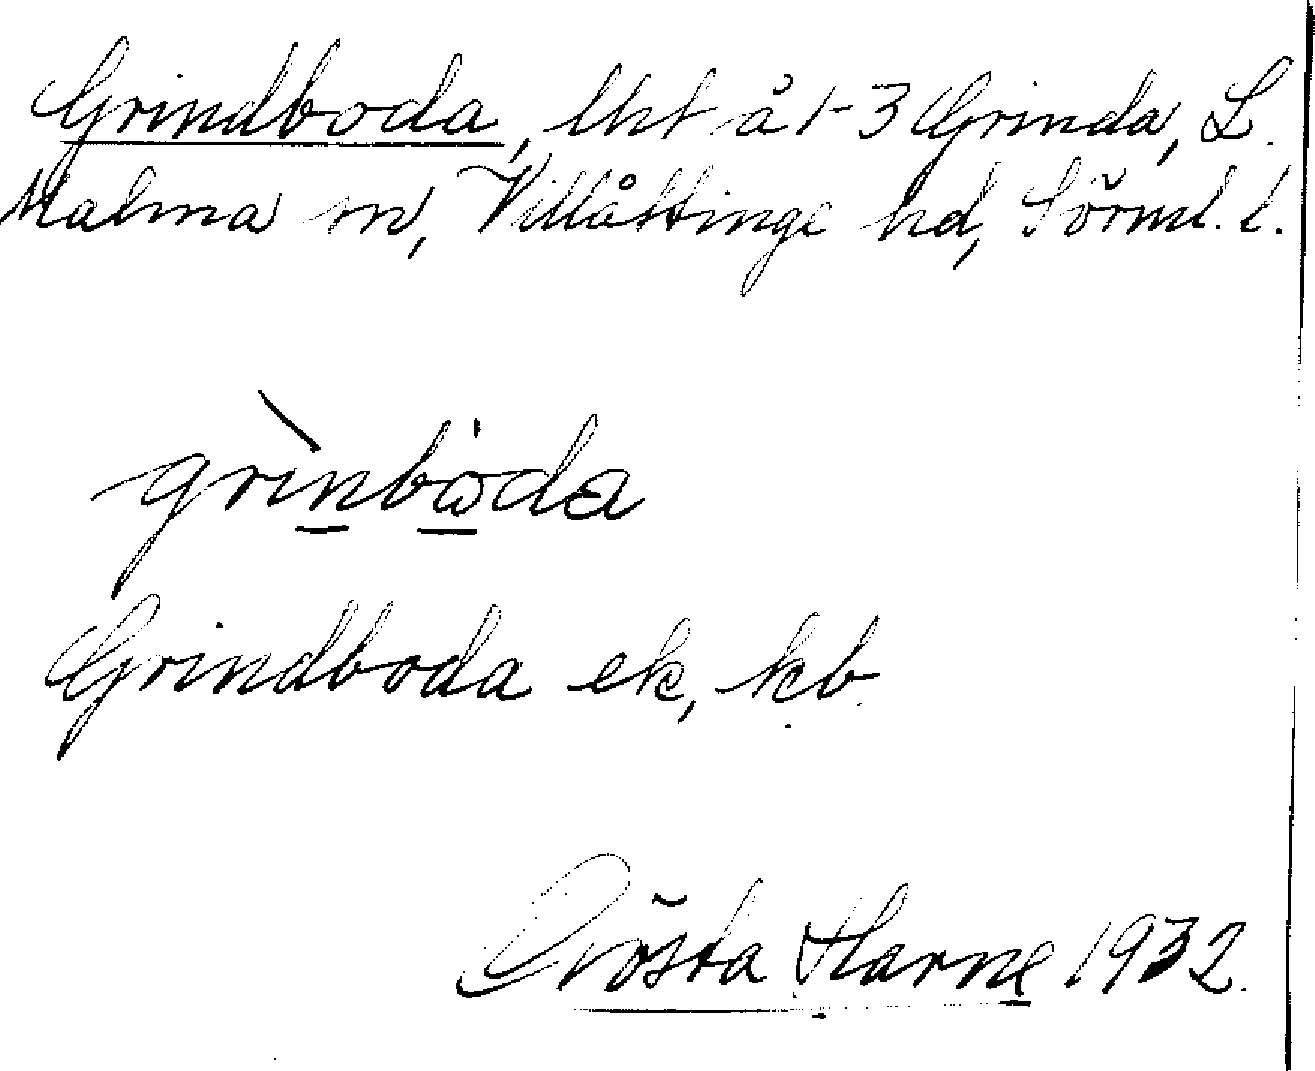 Grindboda, lht å 1-3 Grinda, L.
Malma sn, Villåttinge hd, Sörml. l.
grinbòda
Grindboda ek, kb.
Gösta Harne 1932.